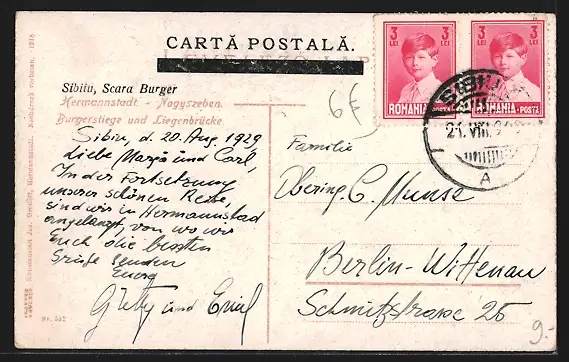 CARTĂ POSTALĂ.
Sibiiu, Scara Burger
Hermannstadt - Nagyszeben.
Burgerstiege und Liegenbrücke.
Sibiu, d. 20. Aug. 1929
Liebe und Carl,
In der Fortsetzung
unserer schönen Reise,
sind wir in Hermannstad
angelangt, von wo wir
Euch die besten
Grüße senden
Eure
und
6€
3 LEI
3 LEI
ROMANIA POSTA
ROMANIA POSTA
SIBIIU
21. VIII. 29
A
Familie
Obering. C. Munse
Berlin-Wittenau
Schmitzstrasse 25
9.-
Nr. 551
1918